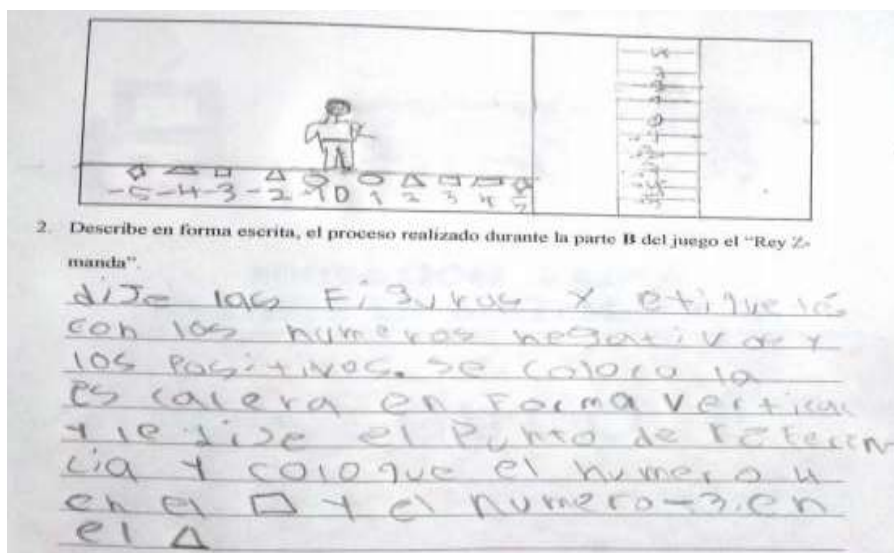 -5 -4 -3 -2 -1 0 1 2 3 4 5
2. Describe en forma escrita, el proceso realizado durante la parte B del juego el “Rey Z-
manda”.
dije las Figuras y etiqueté
con los numeros negativos y
los Positivos. se coloco la
escalera en Forma Vertical
y le dije el Punto de referen
cia y coloque el numero 4
en el ▭ y el numero -3 en
el △